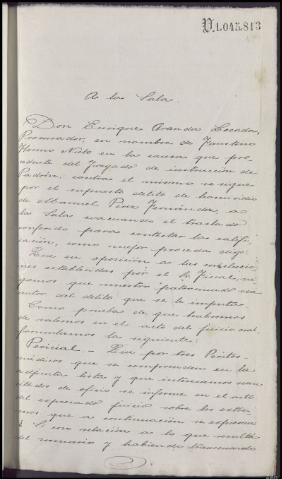 V.1.045.813
A la Sala
Don Enrique Aranda Losada,
Procurador, en nombre de Faustino
Nieto en la causa que pro-
cedente del Juzgado de instrucción de
Padrón, contra el mismo se sigue
por el supuesto delito de homicidio
de Manuel Pena Fernández, a
la Sala evacuando el traslado
conferido para contestar la califi-
cación, como mejor proceda digo:
Que en oposición a las conclusio-
nes establecidas por el Sr. Fiscal, ne-
gamos que nuestro patrocinado sea
autor del delito que se le imputa.
Como prueba de que habremos
de valernos en el acto del juicio oral,
formulamos la siguiente:
Pericial – Que por tres Peritos
médicos que se comprenden en la
adjunta lista y que interesamos sean
citados de oficio se informe en el acto
del expresado juicio sobre los extre-
mos que a continuación se expresan
con relación a lo que resulta
del sumario y habiendo